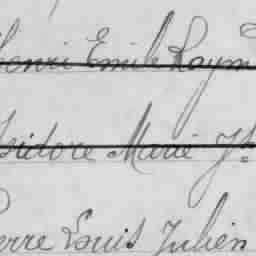 Henri Emile Raym
Isidore Marie J
Pierre Louis Julien